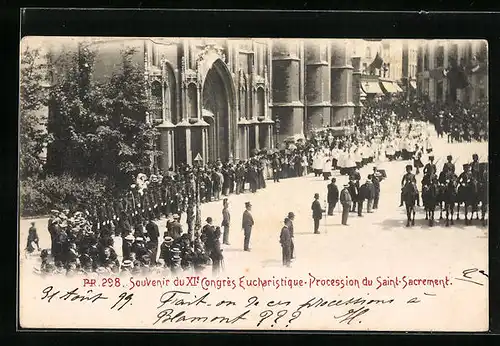 PR. 298. Souvenir du XIe Congrès Eucharistique - Procession du Saint-Sacrement.
31 Août 99. Fait-on de ces processions à
Blamont ???